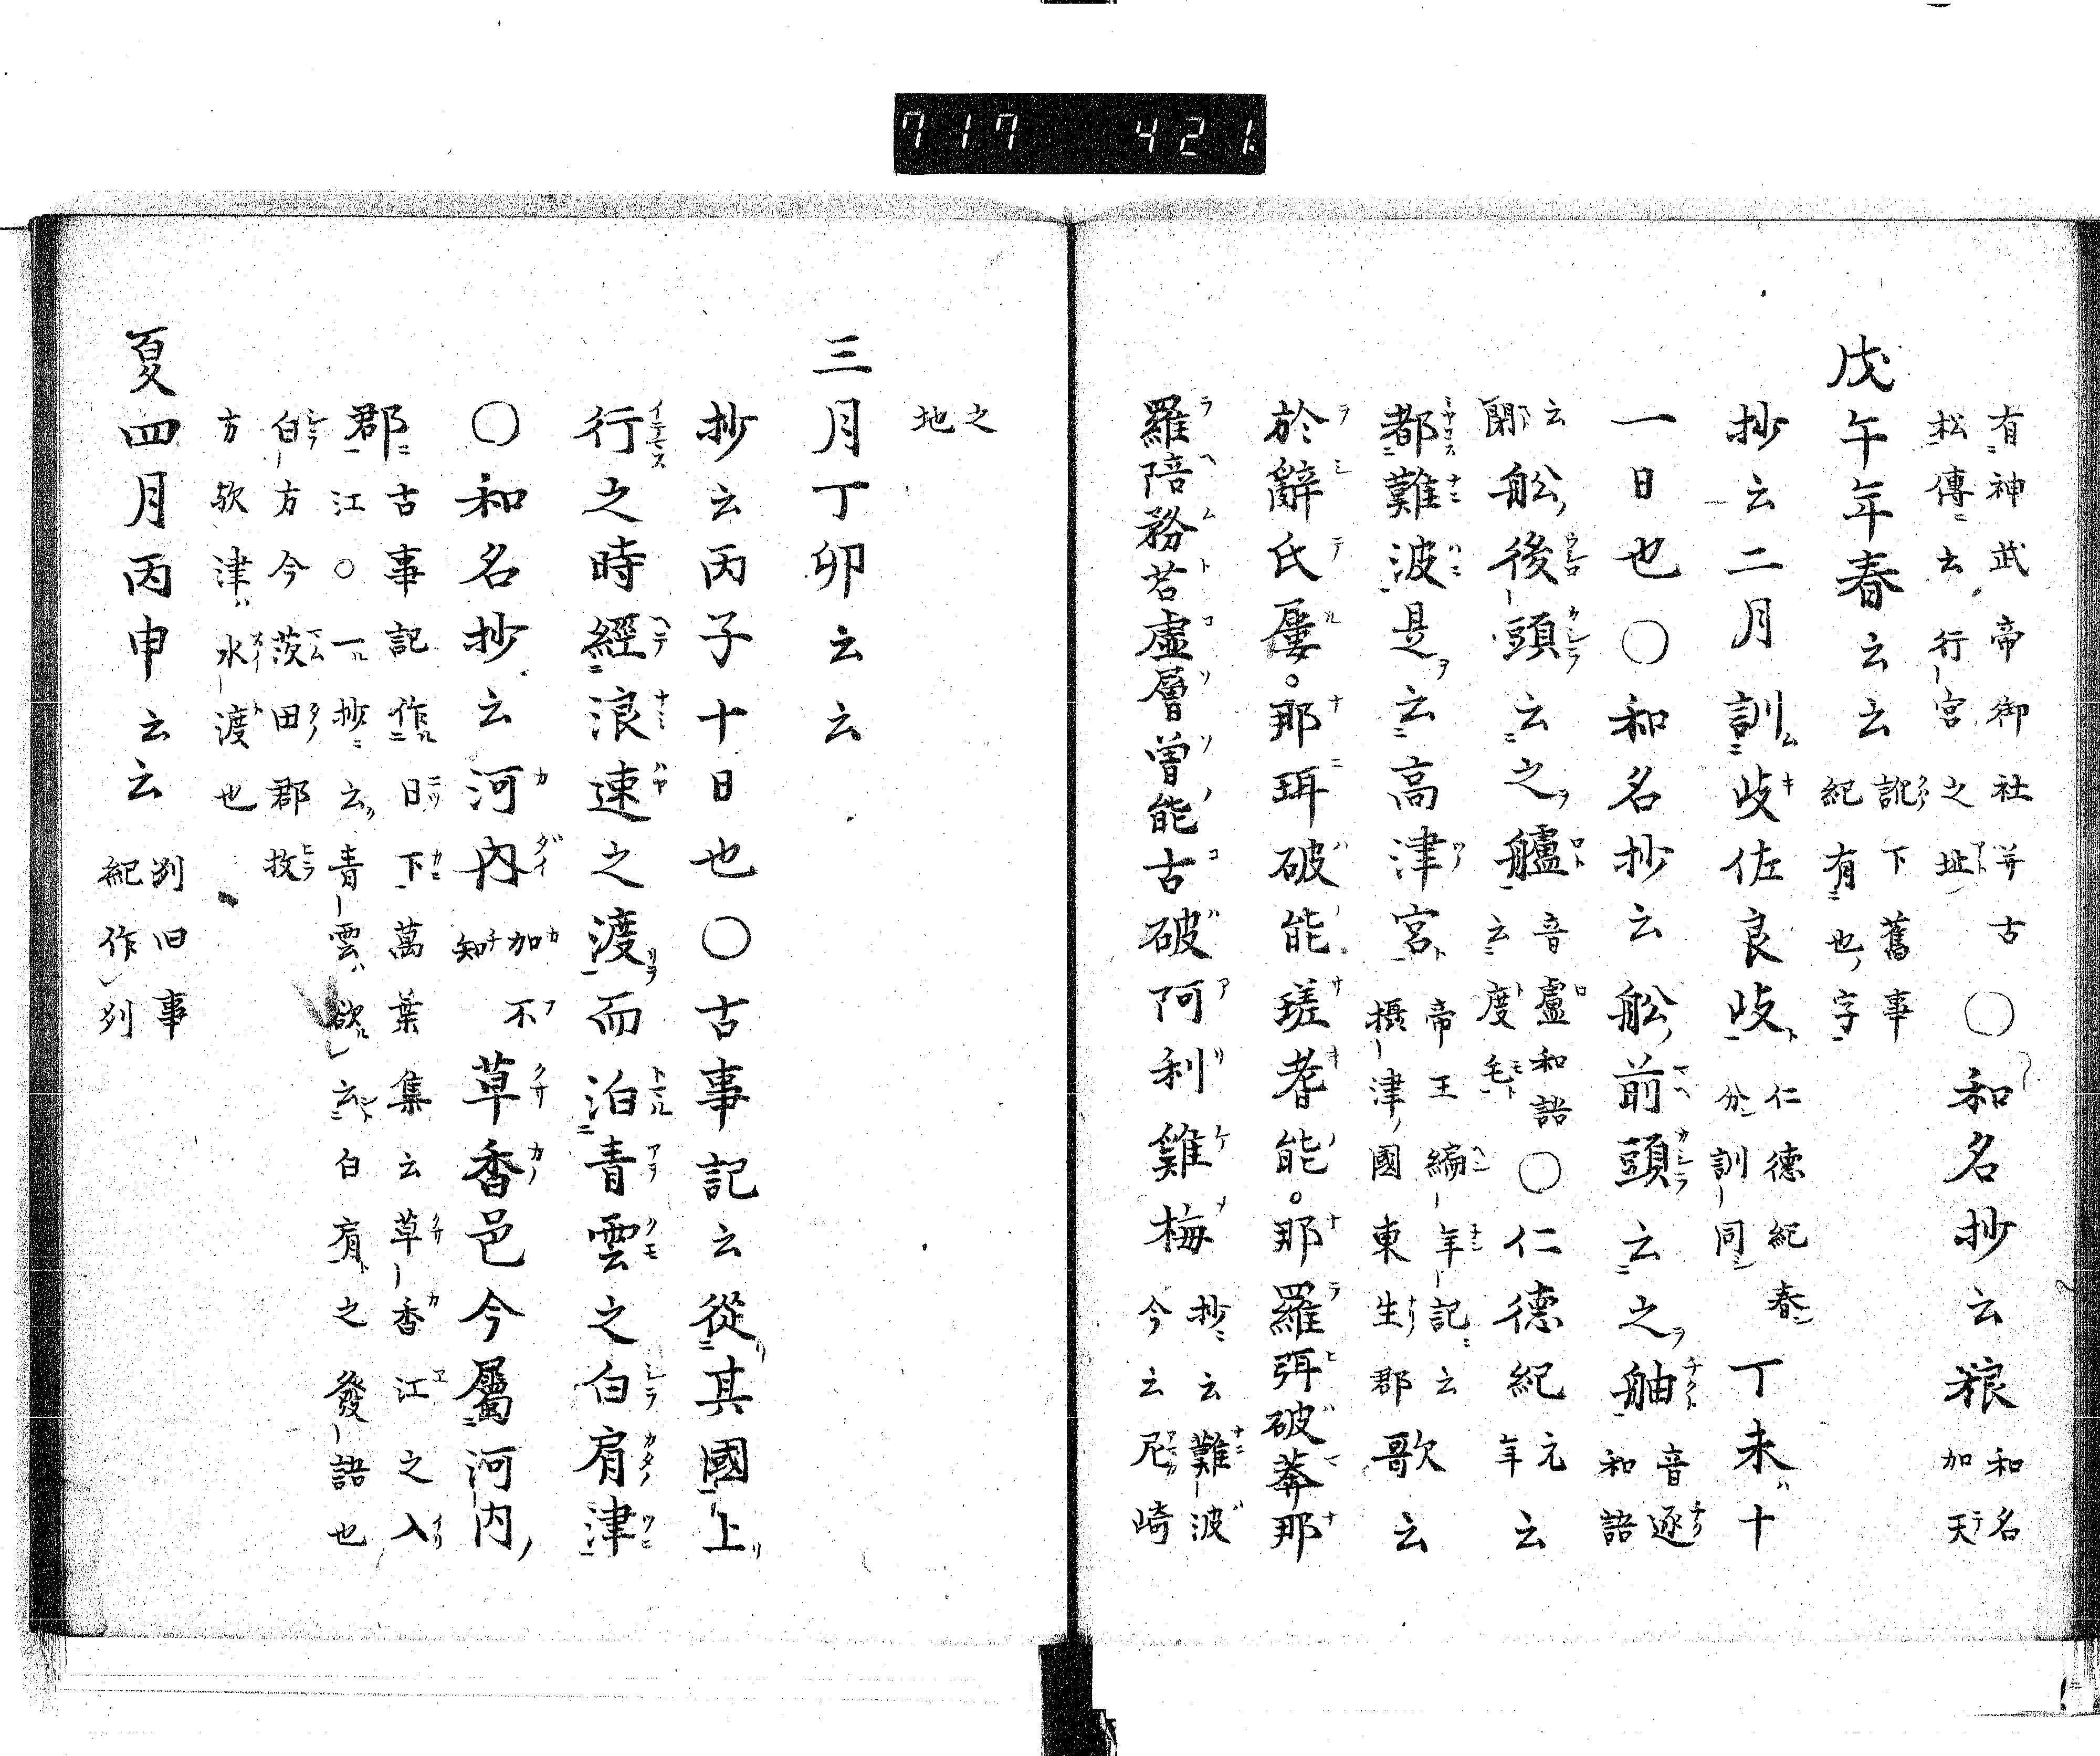 717 421
有神武帝御社并古
松傳云行宮之址
○和名抄云粮
和名
加天
戊午年春云云
訛下舊事
紀有也字
抄云二月訓岐佐良岐
仁德紀春
分訓同
丁未十
一日也○和名抄云舩前頭云之舳
音逐
和語
云
舩後頭云之艫
音盧和語
云度毛
○仁德紀
元
年
云
都難波是云高津宮
帝王編年記云
攝津國東生郡
歌云
於辭氐屢那珥破能瑳耆能那羅弭破莽那
羅陪務苫虛層曽能古破阿利雞梅
抄云難波
今云尼崎
之
地
三月丁卯云云
抄云丙子十日也○古事記云從其國上
行之時經浪速之渡而泊青雲之白肩津
○和名抄云河內
加不
知
草香邑今屬河内
郡
古事記作日下萬葉集云草香江之入
江○一抄云青雲欲云白肩之發語也
白方今茨田郡枚
方欤津水渡也
夏四月丙申云云
列旧事
紀作列